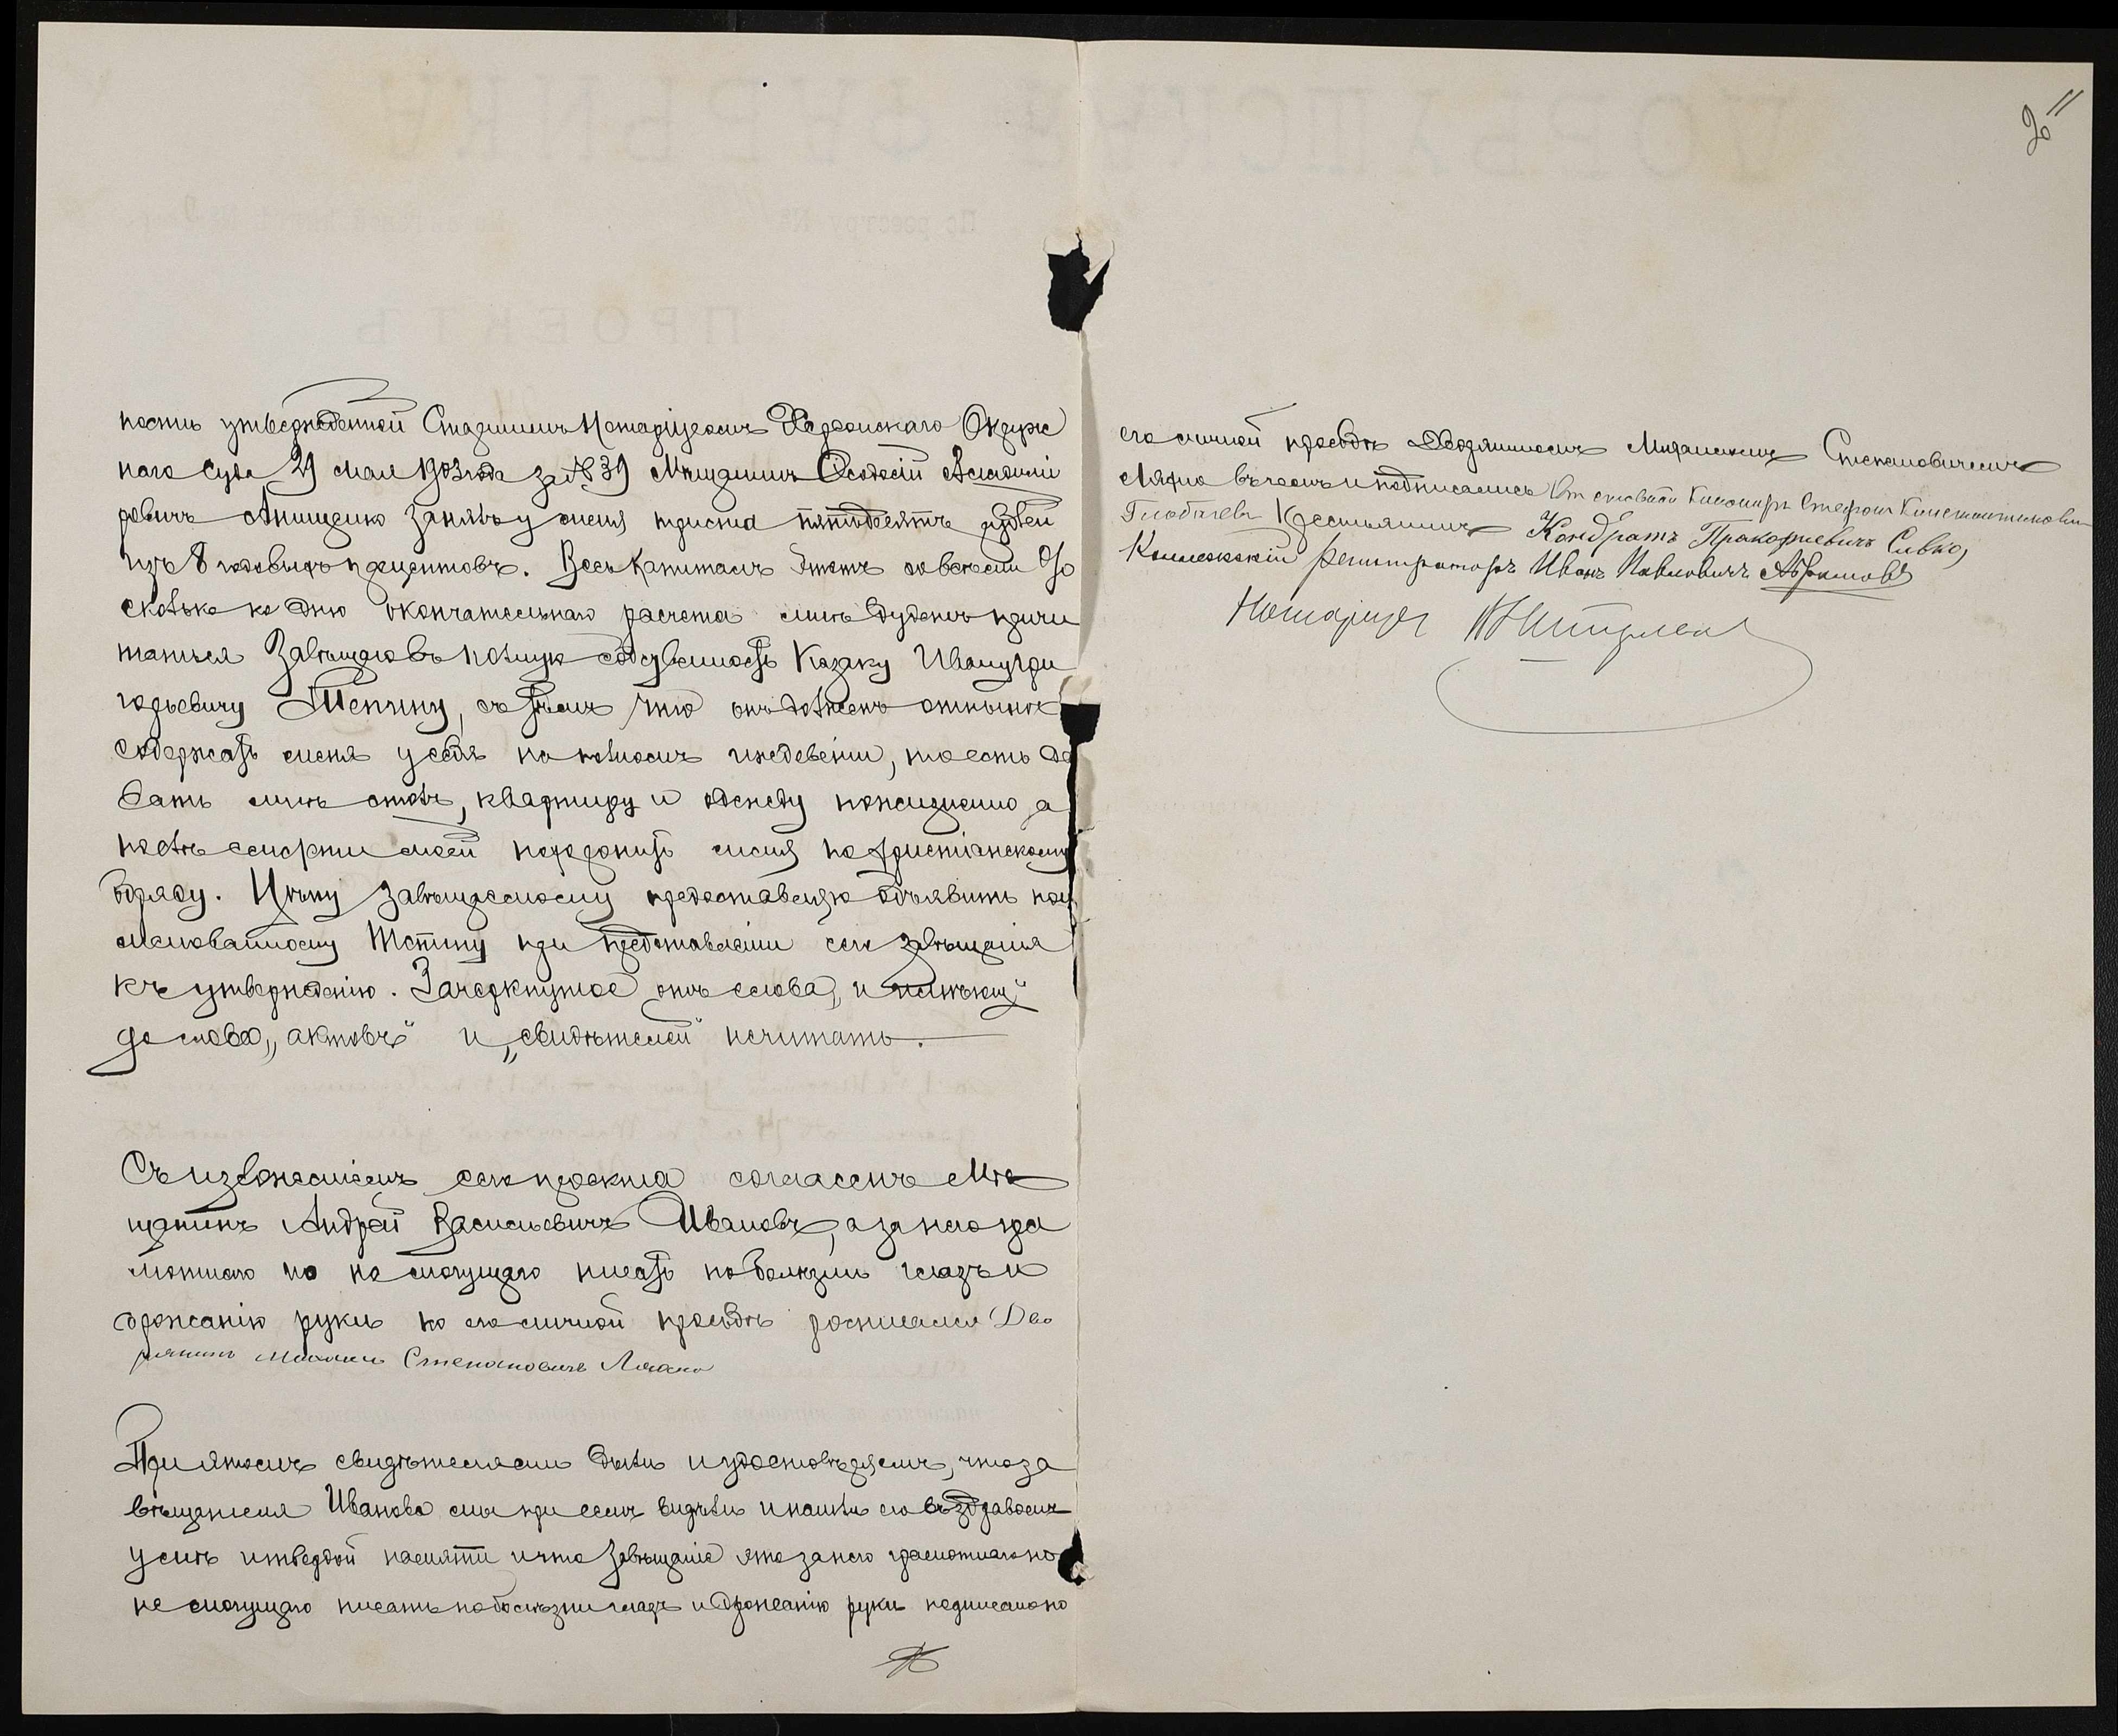 ность утвержденной Старшимъ Нотаріусомъ Херсонскаго Окруж
наго Суда 29 мая 1903 года за № 39 Мещанинъ Ѳеодосій
ровичъ Анищенко занялъ у меня триста пятьдесятъ рублей
изъ 8 годовыхъ процентовъ. Весь капиталъ этотъ со всеми %
сколько ко дню окончательнаго расчета мнѣ будетъ причи
таться Завѣщаю въ полную собственность Казаку Ивану Гри
горьевичу Тепину, съ тѣмъ что онъ долженъ отныне
содержать меня у себя на полномъ иждевеніи, то есть да
вать мнѣ столъ, квартиру и одежду пожизненно а
послѣ смерти моей похоронить меня по христіанскому
обряду. Цѣну завѣщаемому предоставляю объявить пои
менованному Тепину при представленіи сего завѣщанія
къ утвержденію. Зачеркнутое отъ слова „и
до слова „актовъ“ и „свидѣтелей“ нечитать.
Съ изложеніемъ сего проекта согласенъ Мѣ
щанинъ Андрей Васильевичъ Ивановъ, а за него гра
мотнаго но не могущаго писать по болѣзни глазъ и
дрожанію руки по его личной прозьбѣ росписался Дво
рянинъ Михаилъ Степановичъ Ляхно
При этомъ свидѣтелями были и удостовѣряемъ, что за
вѣщателя Иванова мы при семъ видѣли и нашли его въ здравомъ
умѣ и твердой памяти и что Завѣщаніе это за него грамотнаго но
не могущаго писать по болѣзни глазъ и дрожанію руки подписано по
2
его личной прозьбѣ Дворяниномъ Михаиломъ Степановичемъ
Ляхно въ чемъ и подписались Отставной Канониръ Стефанъ Константиновичъ
Глобачевъ Крестьянинъ Кондратъ Прокофиевичъ Сивко,
Коллежскій Регистраторъ Иванъ Павловичъ Абрамовъ
Нотаріусъ